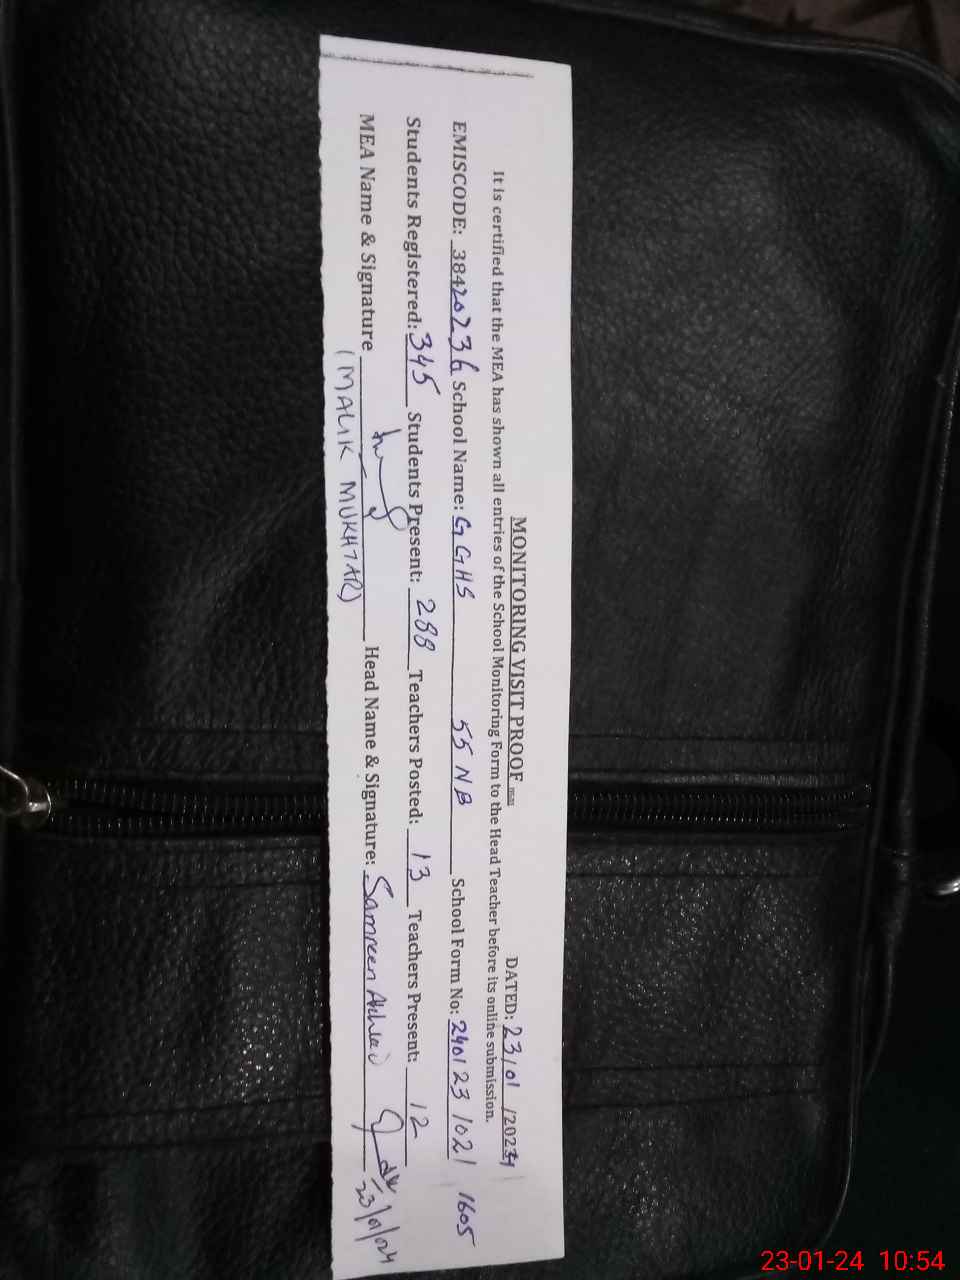 MONITORING VISIT PROOF
DATED: 23/01/2024
It is certified that the MEA has shown all entries of the School Monitoring Form to the Head Teacher before its online submission.
EMISCODE: 38420236 School Name: GGHS 55 NB School Form No: 240123 1021 1605
Students Registered: 345 Students Present: 288 Teachers Posted: 13 Teachers Present: 12
MEA Name & Signature Head Name & Signature: Samreen
(MALIK MUKHTAR)
23/01/024
23-01-24 10:54